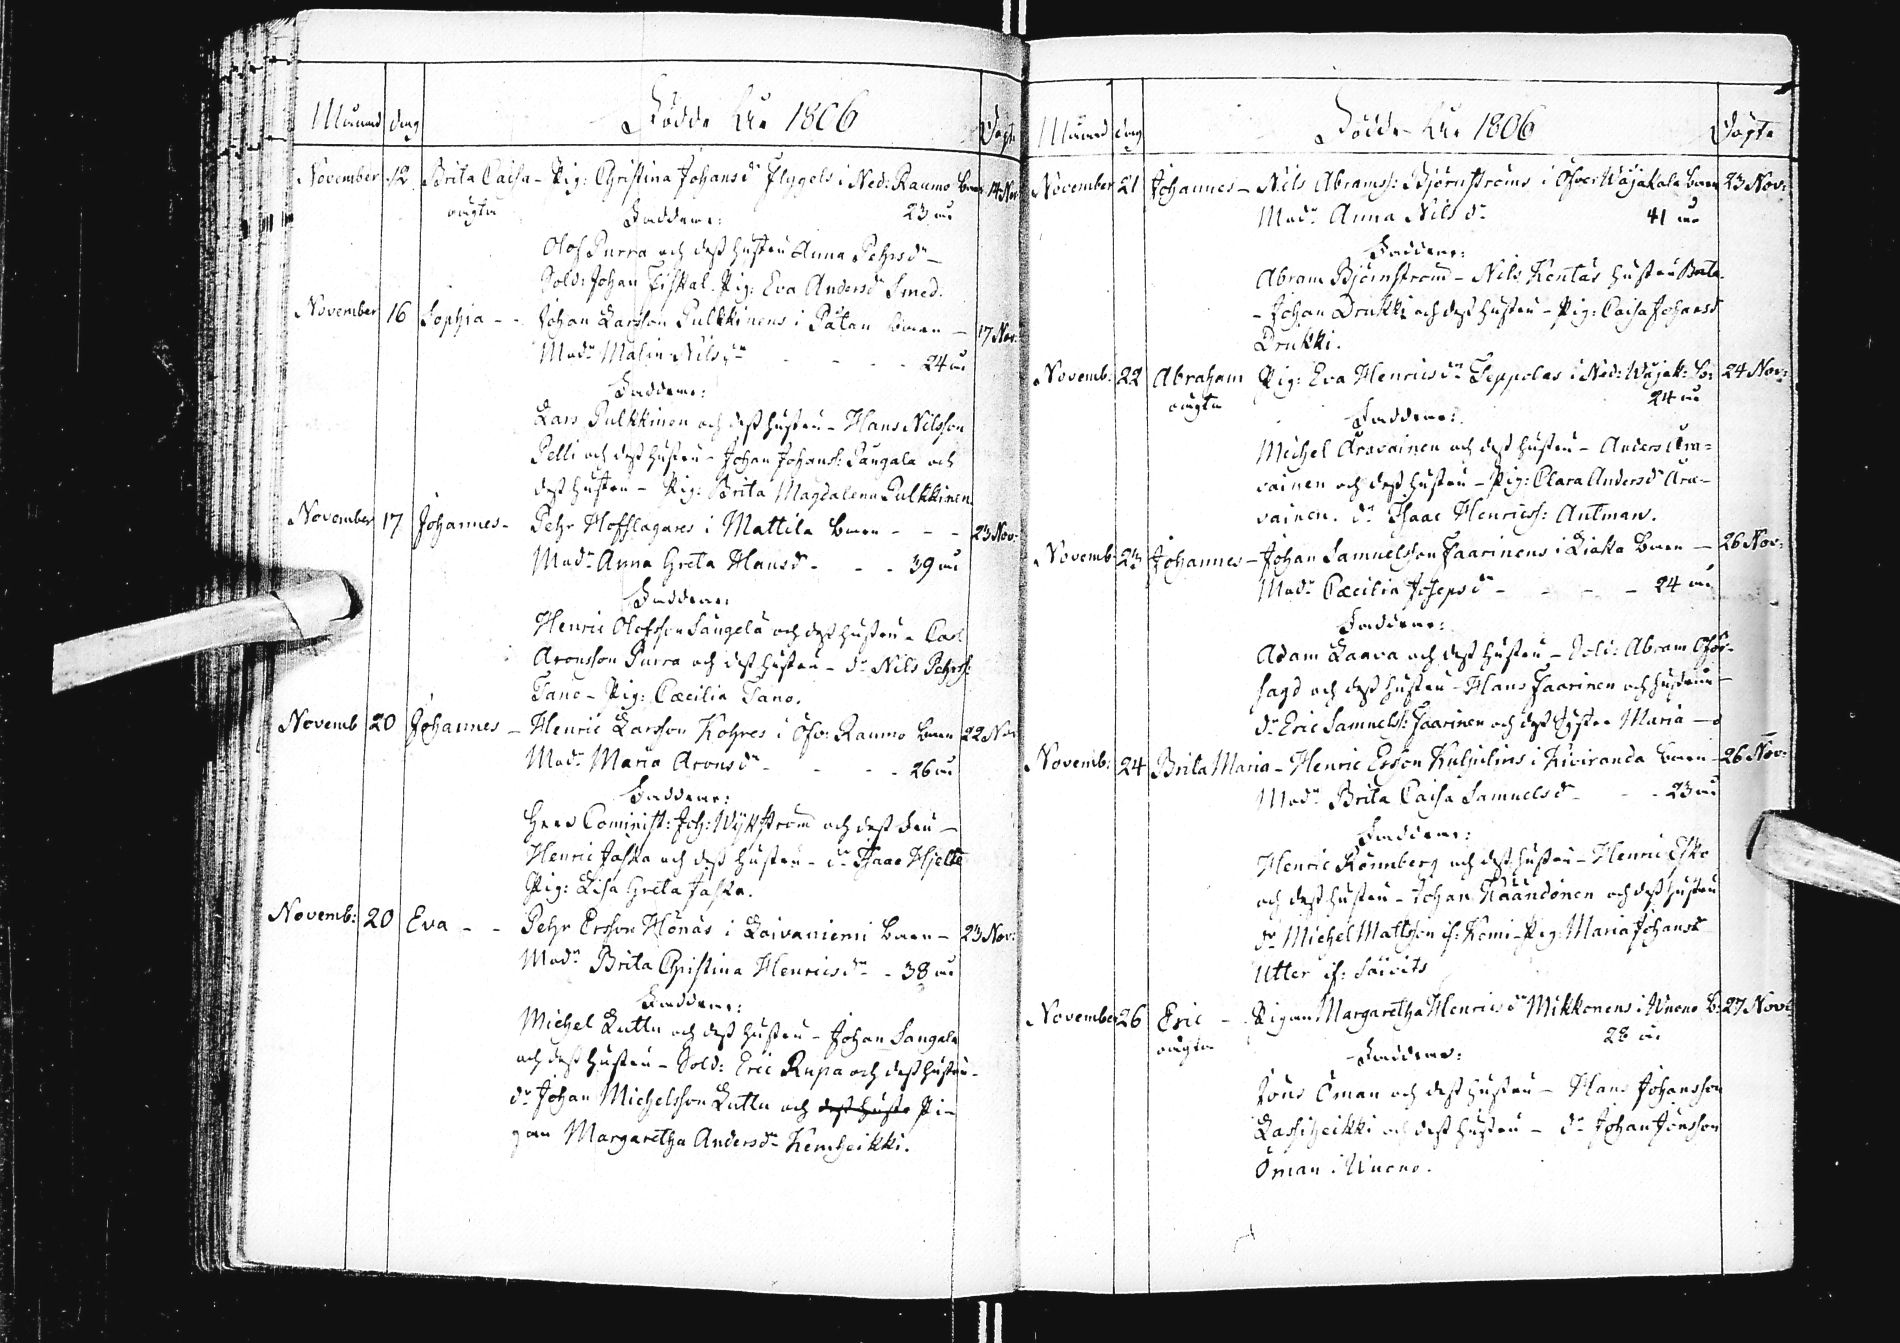 Månad dag Födde År 1806 Döpte
November 12 Brita Caisa – Pig: Christina Johansdr Flygels i Ned: Raumo barn 14 Nov:
oägta Faddrar: 23 år
Olof Purra och dess hustru Anna Pehrsdr –
Sold: Johan Fiskal. Pig: Eva Andersdr Smed.
November 16 Sophia – – Johan Larsson Pulkkinens i Pätan barn – 17 Nov:
Modr Malin Nilsdr - - - 24 år
Faddrar:
Lars Pulkkinen och dess hustru – Hans Nilsson
Pelli och dess hustru – Johan Johanss: Sangala och
dess hustru – Pig: Brita Magdalena Pulkkinen
November 17 Johannes – Pehr Hofflagares i Mattila barn - - - 23 Nov:
Modr Anna Greta Hansdr - - - 39 år
Faddrar:
Henric Olofsson Sangela och dess hustru – Carl
Aronsson Purra och dess hustru – dr Nils Pehrss:
Tano – Pig: Cæcilia Tano.
Novemb 20 Johannes – Henric Larsson Kohres i Öfv: Raumo barn 22 Nov
Modr Maria Aronsdr - - - 26 år
Faddrar:
Herr Cominist: Joh: Wykström och dess fru –
Henric Jaska och dess hustru – dr Isaac Hjelte
Pig: Lisa Greta Jaska.
Novemb: 20 Eva – – Pehr Ersson Hönäs i Laivaniemi barn – 23 Nov:
Modr Brita Christina Henricsdr – 38 år
Faddrar:
Michel Luttu och dess hustru – Johan Sangala
och dess hustru – Sold: Eric Rupa och dess hustru –
dr Johan Michelsson Luttu och dess hustr Pi–
gan Margaretha Andersdr Kemheikki.
Månad dag Födde År 1806 Döpte
November 21 Johannes – Nils Abramss: Björnströms i Öfver Wojakala barn 23 Nov:
Modr Anna Nilsdr 41 år
Faddrar:
Abram Björnström – Nils Kentas hustru Brita
– Johan Drukki och dess hustru – Pig: Caisa Johansd
Drukki.
Novemb: 22 Abraham Pig: Eva Henricsdr Seppolas i Ned: Wojak: ba: 24 Nov:
oägta 24 år
Faddrar:
Michel Aravainen och dess hustru – Anders Ara=
vainen och dess hustru – Pig: Clara Andersdr Ara–
vainen. dr Isaac Henricss: Autman.
Novemb: 23 Johannes – Johan Samuelsson Jaarinens i Liakka barn – 26 Nov:
Modr Cæcilia Josepsdr - - - 24 år
Faddrar:
Adam Laava och dess hustru – Sold: Abram Oför-
sagd och dess hustru – Hans Jaarinen och hustrun –
dr Eric Samuelss: Jaarinen och dess syster Maria –
Novemb: 24 Brita Maria – Henric Ersson Kuljuliins i Kiviranda barn – 26 Nov:
Modr Brita Caisa Samuelsdr - - 23 år
Faddrar:
Henric Rönnberg och dess hustru – Henric Esko
och dess hustru – Johan Käändönen och dess hustru
dr Michel Mattsson if: Kemi – Pig: Maria Johansd
Utter if: Säivits
November 26 Eric – Pigan Margaretha Henricsdr Mikkonens i Wuono b: 27 Nov:
oägta 28 år
Faddrar:
Jöns Öman och dess hustru – Hans Johansson
Lassiheikki och dess hustru – dr Johan Jönsson
Öman i Wuono.